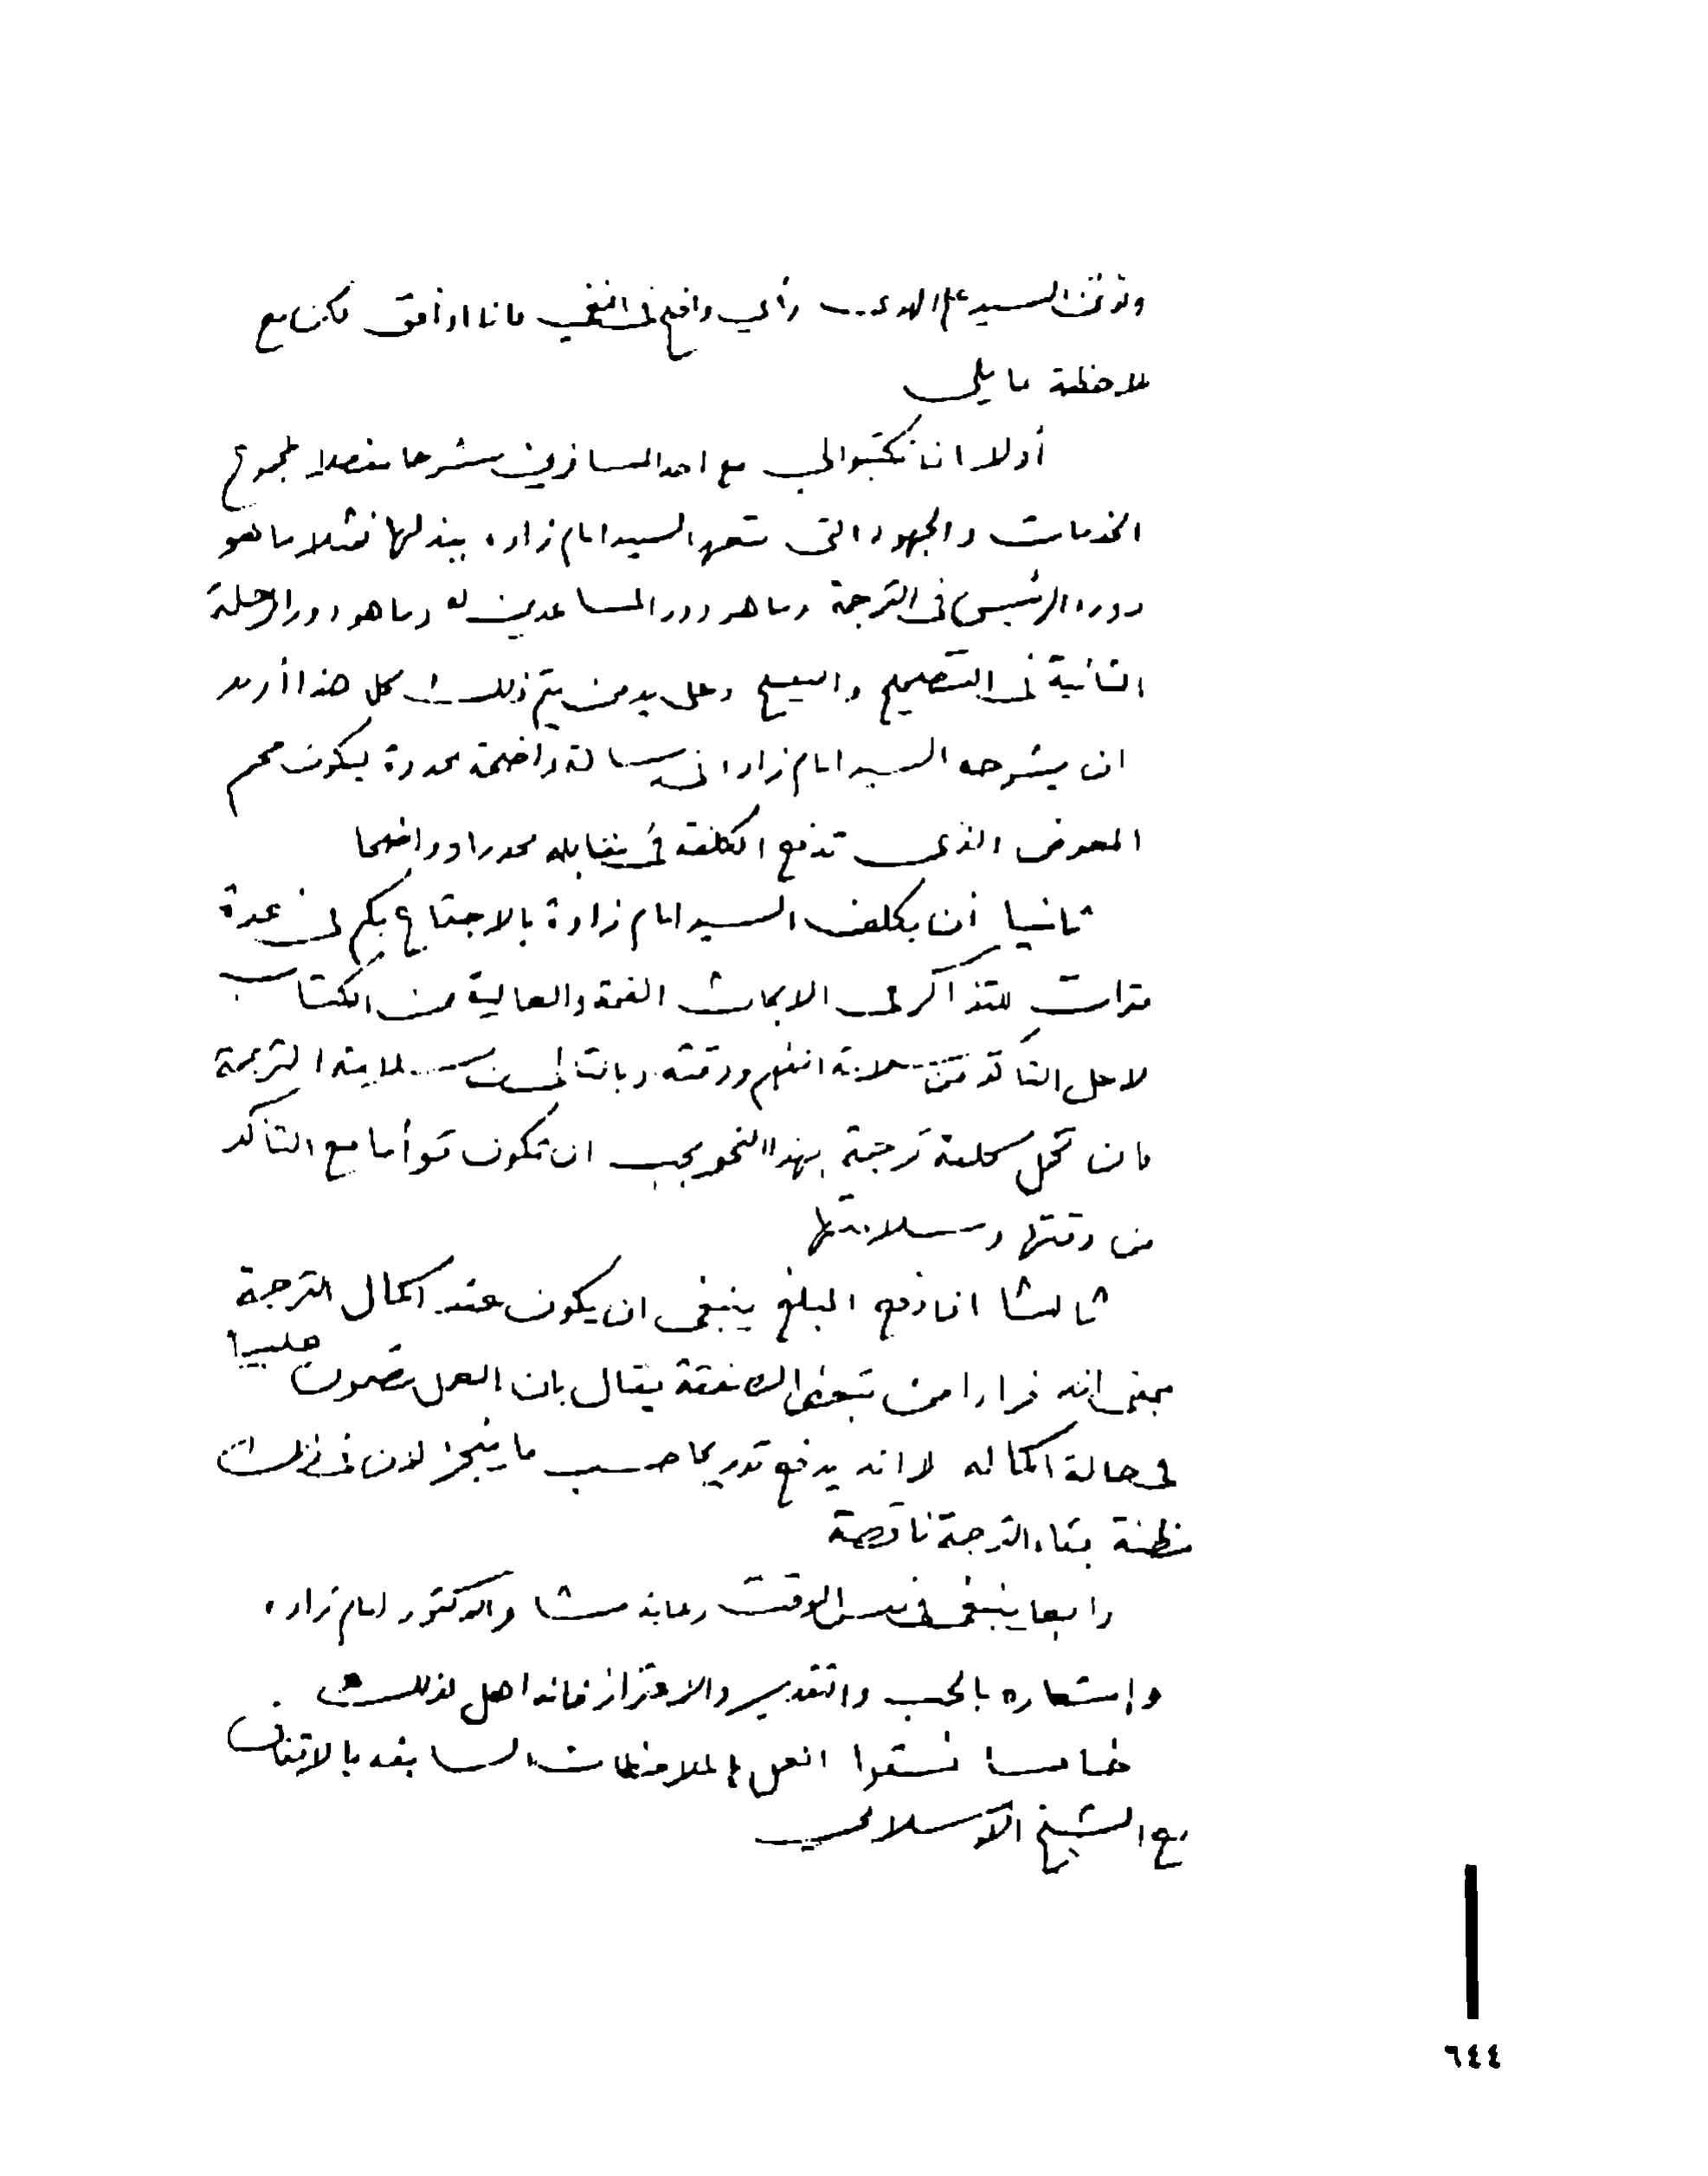 السيد علم الهدى رأي واضح في وانا اوافق لكن مع
ملاحظة ما يلي
أولا ان تكتبوا لي مع احد المسافرين شرحا مفصلا لمجموع
الخدمات والجهود التي يتعهد السيد امام زاده ببذلها فمثلا ما هو
دوره الرئيسي في الترجمة وما هو دور المساعدين له وما هو دور المرحلة
الثانية في التصحيح و وعلى يد من يتم ذلك كل هذا أريد
ان يشرحه السيد امام زاده في رسالة واضحة محددة ليكون
المعوض الذي تدفع الكلفة في مقابله محددا وواضحا
ثانيا أن يكلف السيد امام زادة بالاجتماع بكم في عدة
مرات للتذاكر في الابحاث المهمة والعالية من الكتاب
لاجل التأكد من سلامة الفهم ودقته وبالتالي سلامة الترجمة
فان تحمل كلفة ترجمة بهذا النحو يجب ان تكون توأما مع التأكد
من دقتها وسلامتها
ثالثا ان دفع المبلغ ينبغي ان يكون عند اكمال الترجمة
بمعنى انه فرارا من تبعض الصفقة يقال بان العمل مضمون
في حالة اكماله لا انه يدفع تدريجا حسب ما ينجز لان في ذلك
مظنة بقاء الترجمة ناقصة
رابعا ينبغي في نفس الوقت رعاية مشاعر الدكتور امام زاده
وإشعاره بالحب والتقدير والاعتزاز فانه اهل لذلك
خامسا نسقوا العمل والملاحظات السابقة بالاتفاق
مع الشيخ الاسلامي
٦٤٤